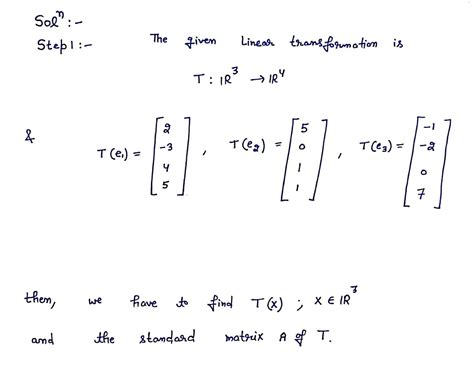 Solⁿ :-
Step1:- The given Linear transformation is
T : ℝ³ → ℝ⁴
& T(e₁) = [2 -3 4 5] , T(e₂) = [5 0 1 1] , T(e₃) = [-1 -2 0 7]
then, we have to find T(x) ; x ∈ ℝ³
and the standard matrix A of T.